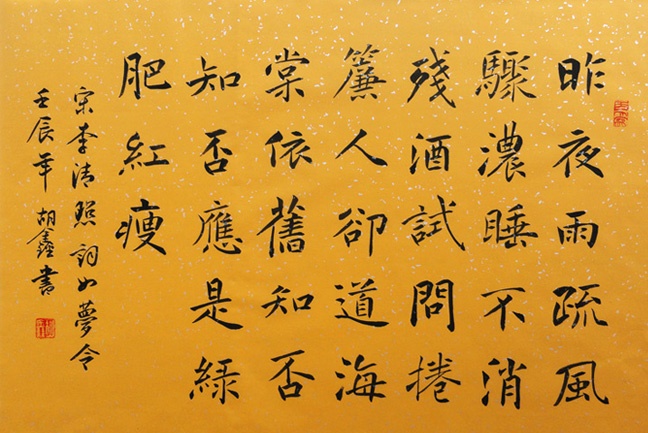 昨夜雨疏風
驟濃睡不消
殘酒試問捲
簾人卻道海
棠依舊知否
知否應是綠
肥紅瘦
宋李清照詞如夢令
壬辰年 胡鑫書